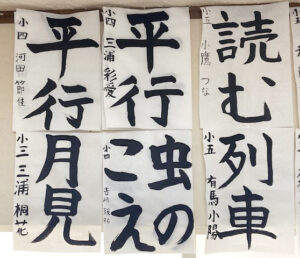 読む
小五 小鷹 つな
平行
小四 三浦 彩愛
平行
小四 河田
列車
小五 有馬小陽
虫の
こえ
小四
月見
小三 三浦 桐花